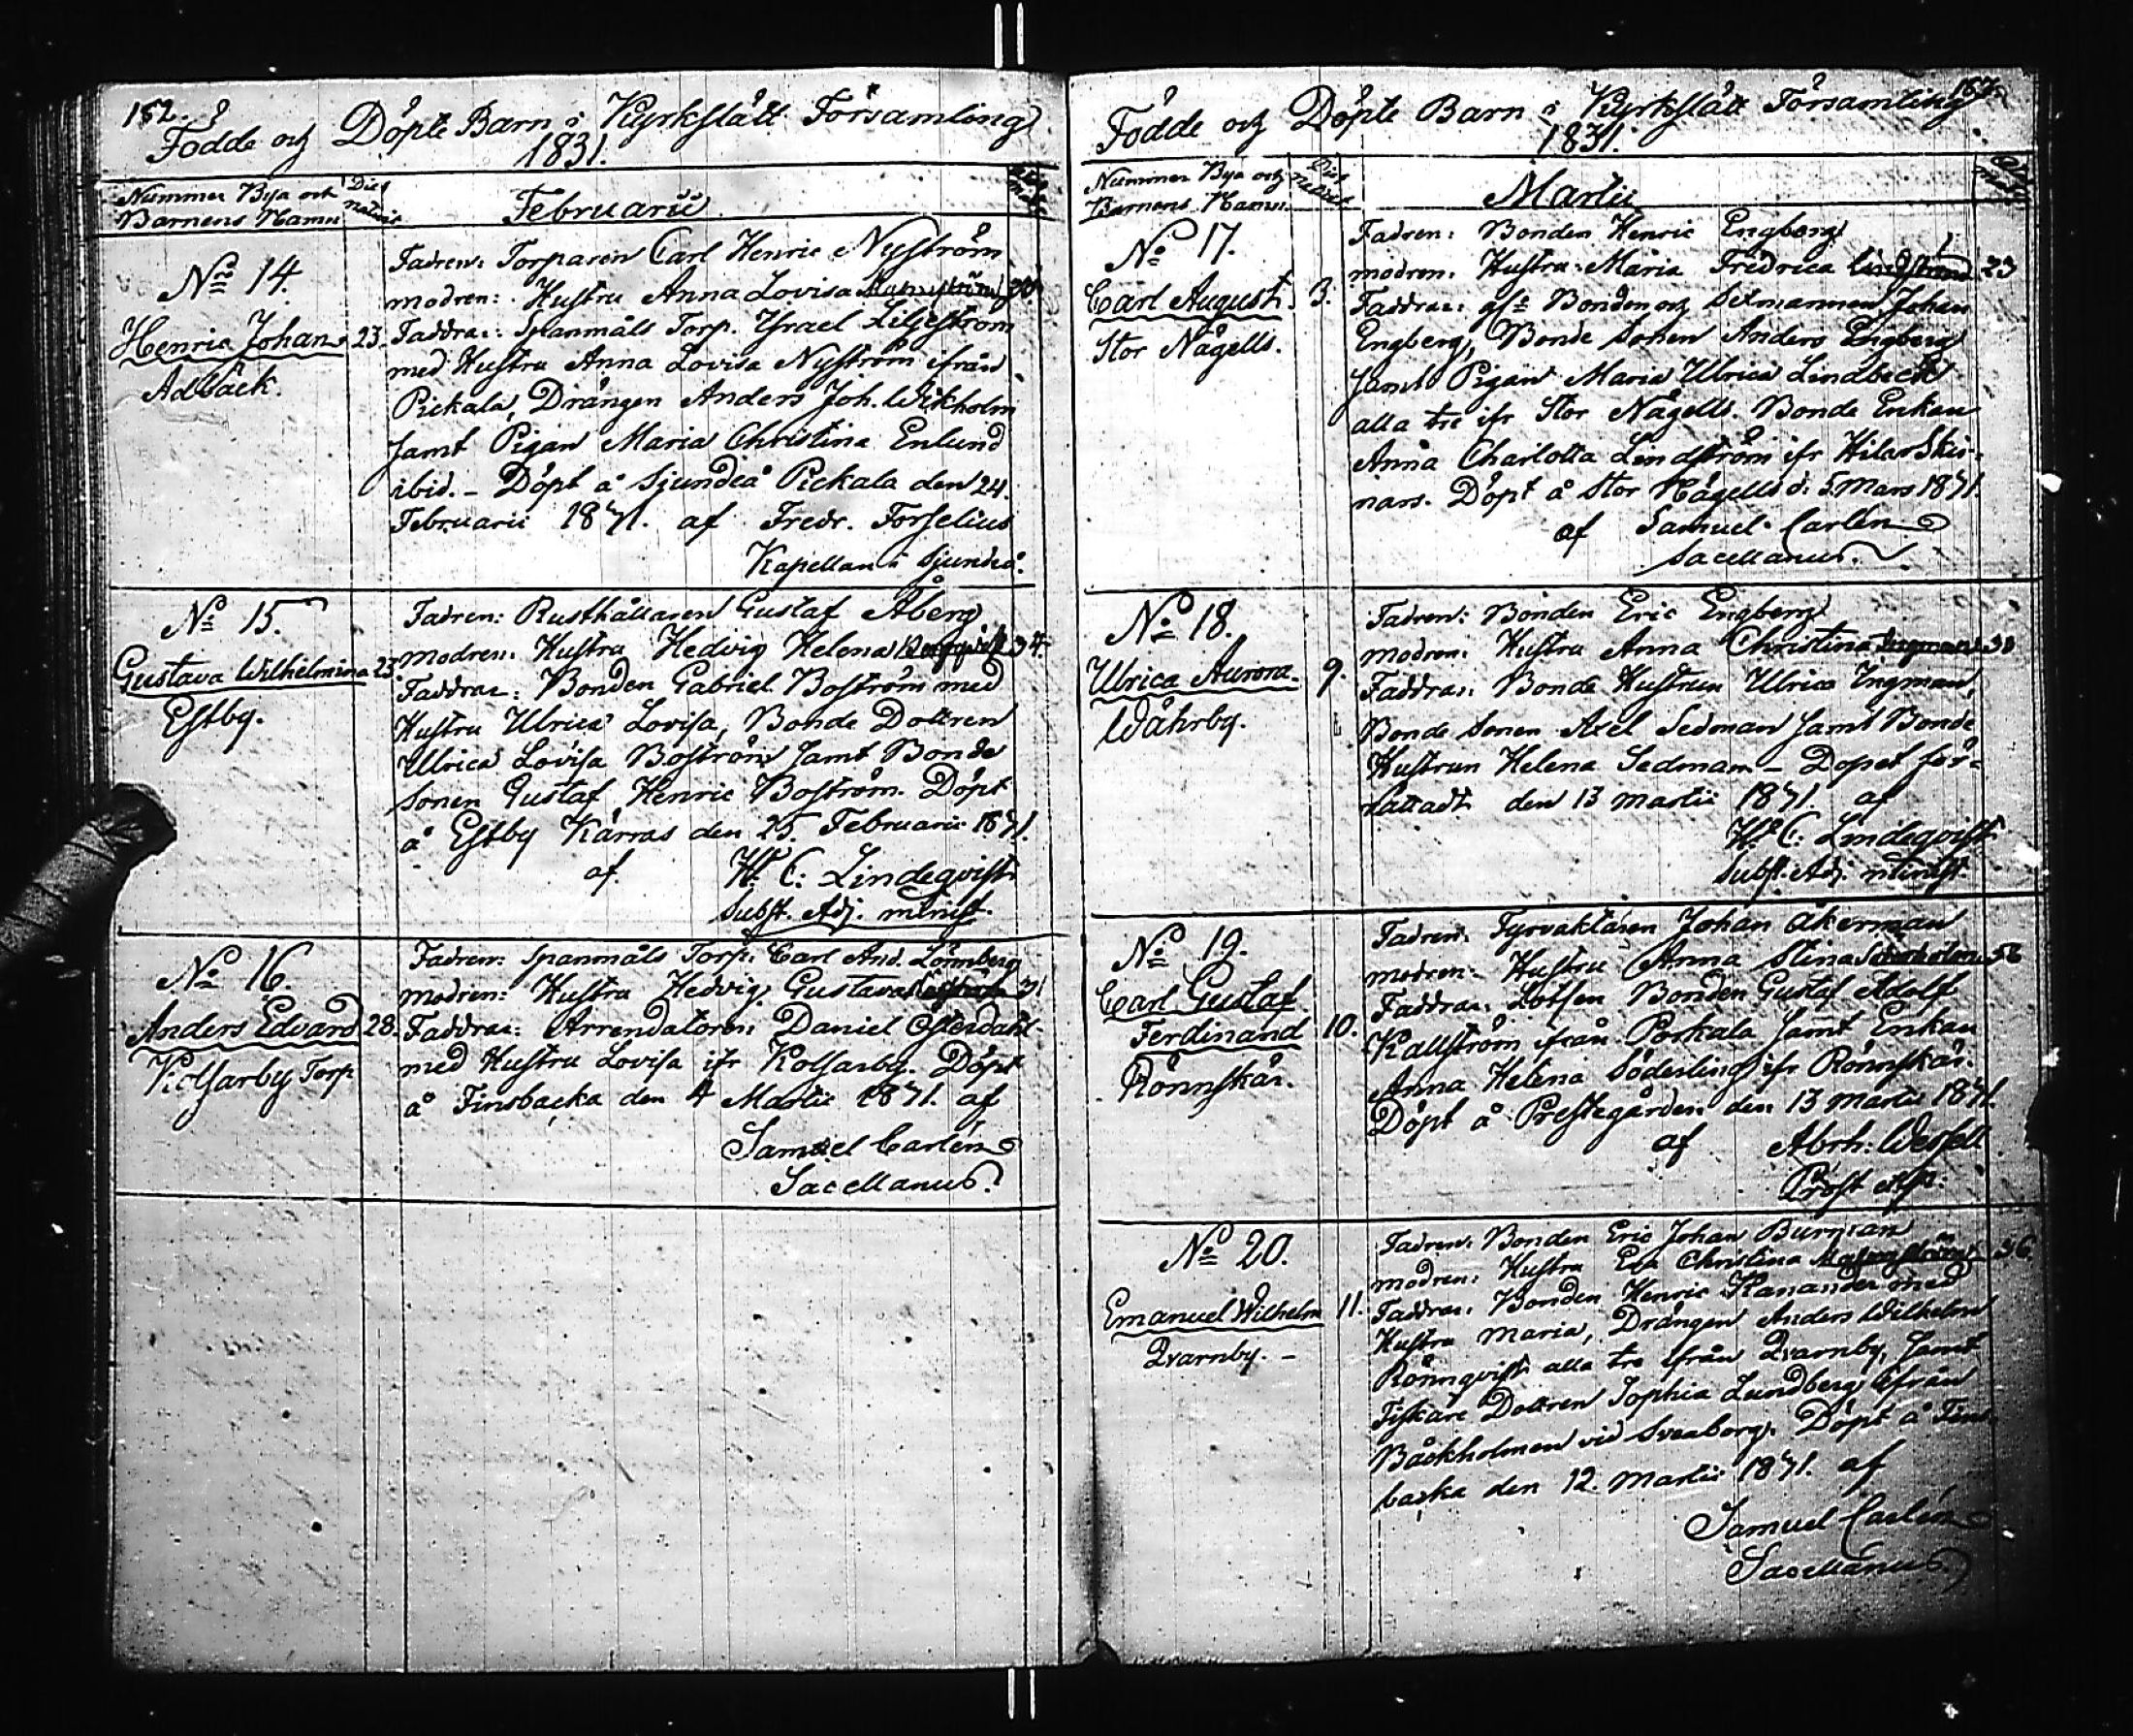 162.
Födde och Döpte Barn i Kyrkslätt Församling
1831.
Nummer Bya och
Barnens Namn
Dies
natavit.
Februarii
No 14.
Henric Johan
Adbäck.
23.
Fadren: Torparen Carl Henric Nyström
modren: Hustru Anna Lovisa
Faddrar: Spanmåls Torp. Israel Liljeström
med Hustru Anna Lovisa Nyström ifrån
Pickala, Drängen Anders Joh. Wikholm
samt Pigan Maria Christina Enlund
ibid. – Döpt å Sjundeå Pickala den 24.
Februarii 1831. af Fredr. Forselius
Kapellan i Sjundeå.
No 15.
Gustava Wilhelmina
Estby.
23.
Fadren: Rusthållaren Gustaf Åberg
modren: Hustru Hedvig Helena 34.
Faddrar: Bonden Gabriel Boström med
Hustru Ulrica Lovisa, Bonde Dottren
Ulrica Lovisa Boström samt Bonde
sonen Gustaf Henric Boström. Döpt
å Estby Kärras den 25. Februarii 1831.
af H: C: Lindeqvist
subst. Adj. minist.
No 16.
Anders Edvard
Kolsarby Torp
28.
Fadren: Spanmåls Torp. Carl And. Lönnberg
modren: Hustru Hedvig Gustava 31
Faddrar: Arrendatoren Daniel Österdahl
med Hustru Lovisa ifr Kolsarby. Döpt
å Finsbacka den 4 Martii 1831. af
Samuel Carlén
Sacellanus.
Födde och Döpte Barn i Kyrkslätt Församling
1831.
Nummer Bya och
Barnens Namn.
Dies
Martii
No 17.
Carl August.
Stor Någells.
3.
Fadren: Bonden Henric Engberg
modren: Hustru Maria Fredrica Lindström 23
Faddrar: Bonden och Sexmannen Johan
Engberg, Bonde sonen Anders Engberg
samt Pigan Maria Ulrica Lindbeck
alla tre ifr Stor Någells. Bonde Enkan
Anna Charlotta Lindström ifr Hilar Ski-
nars. Döpt å Stor Någells d: 5 Mars 1831.
af Samuel Carlén
Sacellanus.
No 18.
Ulrica Aurora.
Wåhrby.
9.
Fadren: Bonden Eric Engberg
modren: Hustru Anna Christina Ingman 30
Faddrar: Bonde Hustrun Ulrica Ingman,
Bonde sonen Axel Sedman samt Bonde
Hustrun Helena Sedman – Dopet för-
rättadt den 13 martii 1831. af
H: C: Lindeqvist
subst. Adj. minist.
No 19.
Carl Gustaf
Ferdinand
Rönnskär.
10.
Fadren: Fyrvaktaren Johan Åkerman
modren: Hustru Anna Stina
Faddrar: Lotsen Bonden Gustaf Adolf
Kallström ifrån Porkala samt Enkan
Anna Helena Söderling ifr Rönnskär.
Döpt å Prestegården den 13 martii 1831.
af Abrh: Wessell
Prost
No 20.
Emanuel Wilhelm
Qvarnby. –
11.
Fadren: Bonden Eric Johan Burman
modren: Hustru Eva Christina 36.
Faddrar: Bonden Henric Kanander med
Hustru Maria, Drängen Anders Wilhelm
Rönnqvist alla tre ifrån Qvarnby, samt
Fiskare Dottren Sophia Lundberg ifrån
Backholmen vid Sveaborg. Döpt å Fins-
backa den 12. martii 1831. af
Samuel Carlén
Sacellanus.